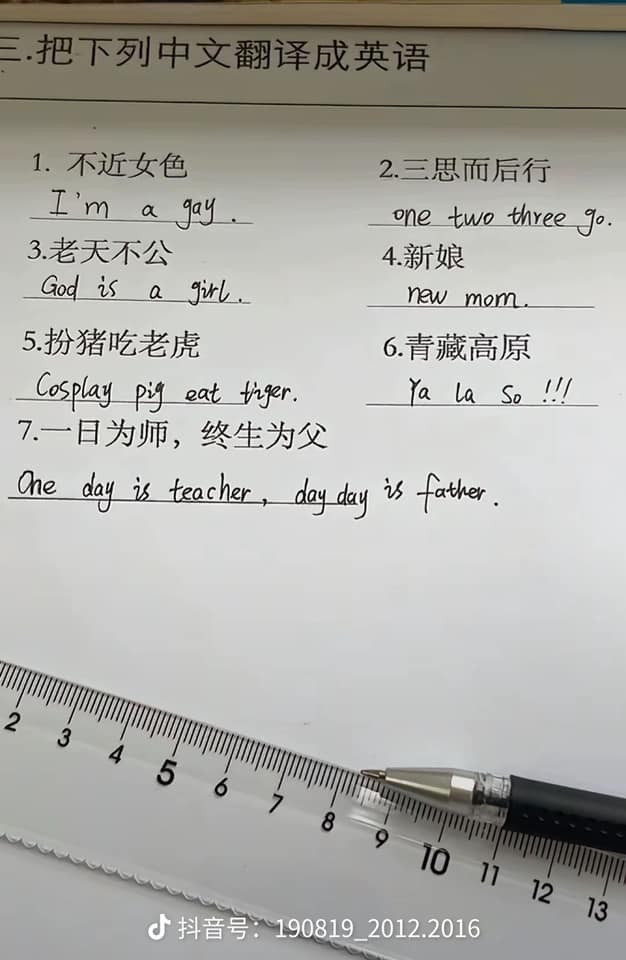 三.把下列中文翻译成英语
1. 不近女色
I'm a gay.
2.三思而后行
one two three go.
3.老天不公
God is a girl.
4.新娘
new mom.
5.扮猪吃老虎
Cosplay pig eat tiger.
6.青藏高原
Ya la so !!!
7.一日为师，终生为父
One day is teacher, day day is father.
2 3 4 5 6 7 8 9 10 11 12 13
抖音号：190819_2012.2016